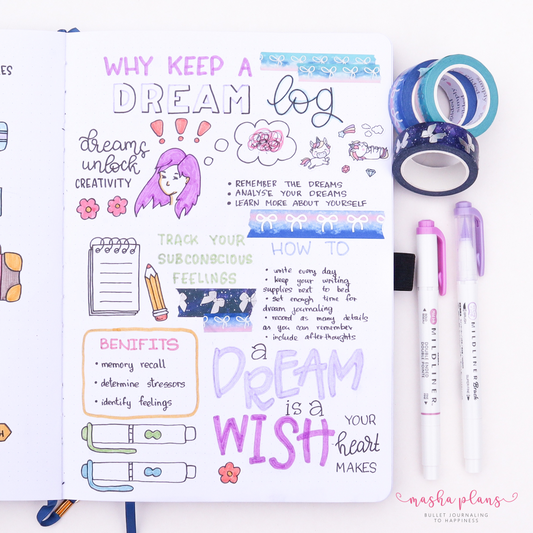 WHY KEEP A
DREAM log
dreams
unlock
CREATIVITY
• REMEMBER THE DREAMS
• ANALYSE YOUR DREAMS
• LEARN MORE ABOUT YOURSELF
TRACK YOUR
SUBCONSCIOUS
FEELINGS
HOW TO
• write every day
• keep your writing
supplies next to bed
• set enough time for
dream journaling
• record as many details
as you can remember
• include afterthoughts
BENIFITS
• memory recall
• determine stressors
• identify feelings
a
DREAM
is a
WISH
YOUR
heart
MAKES
MILDLINER
DOUBLE ENDED
MILDLINER Brush
masha plans
BULLET JOURNALING
TO HAPPINESS